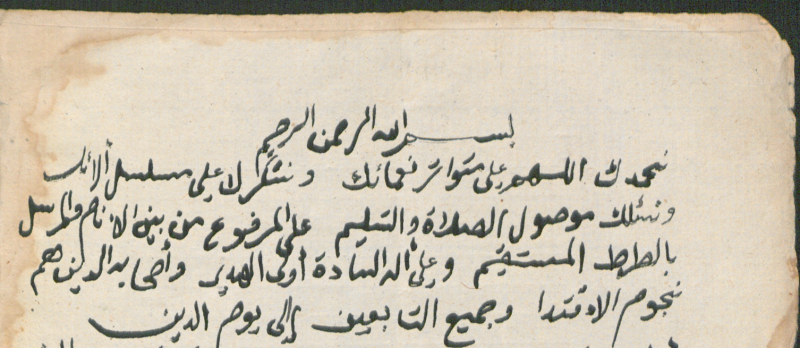 بسم الله الرحمن الرحيم
نحمدك اللهم على متواتر نعمائك ونشكرك على مسلسل ألائك
ونسئلك موصول الصلاة والتسليم على المرفوع من بين الانام والمرسل
بالصراط المستقيم وعلى اله السادة أولى الهدى وأصحابه الذين هم
نجوم الاقتدا وجميع التابعين إلى يوم الدين